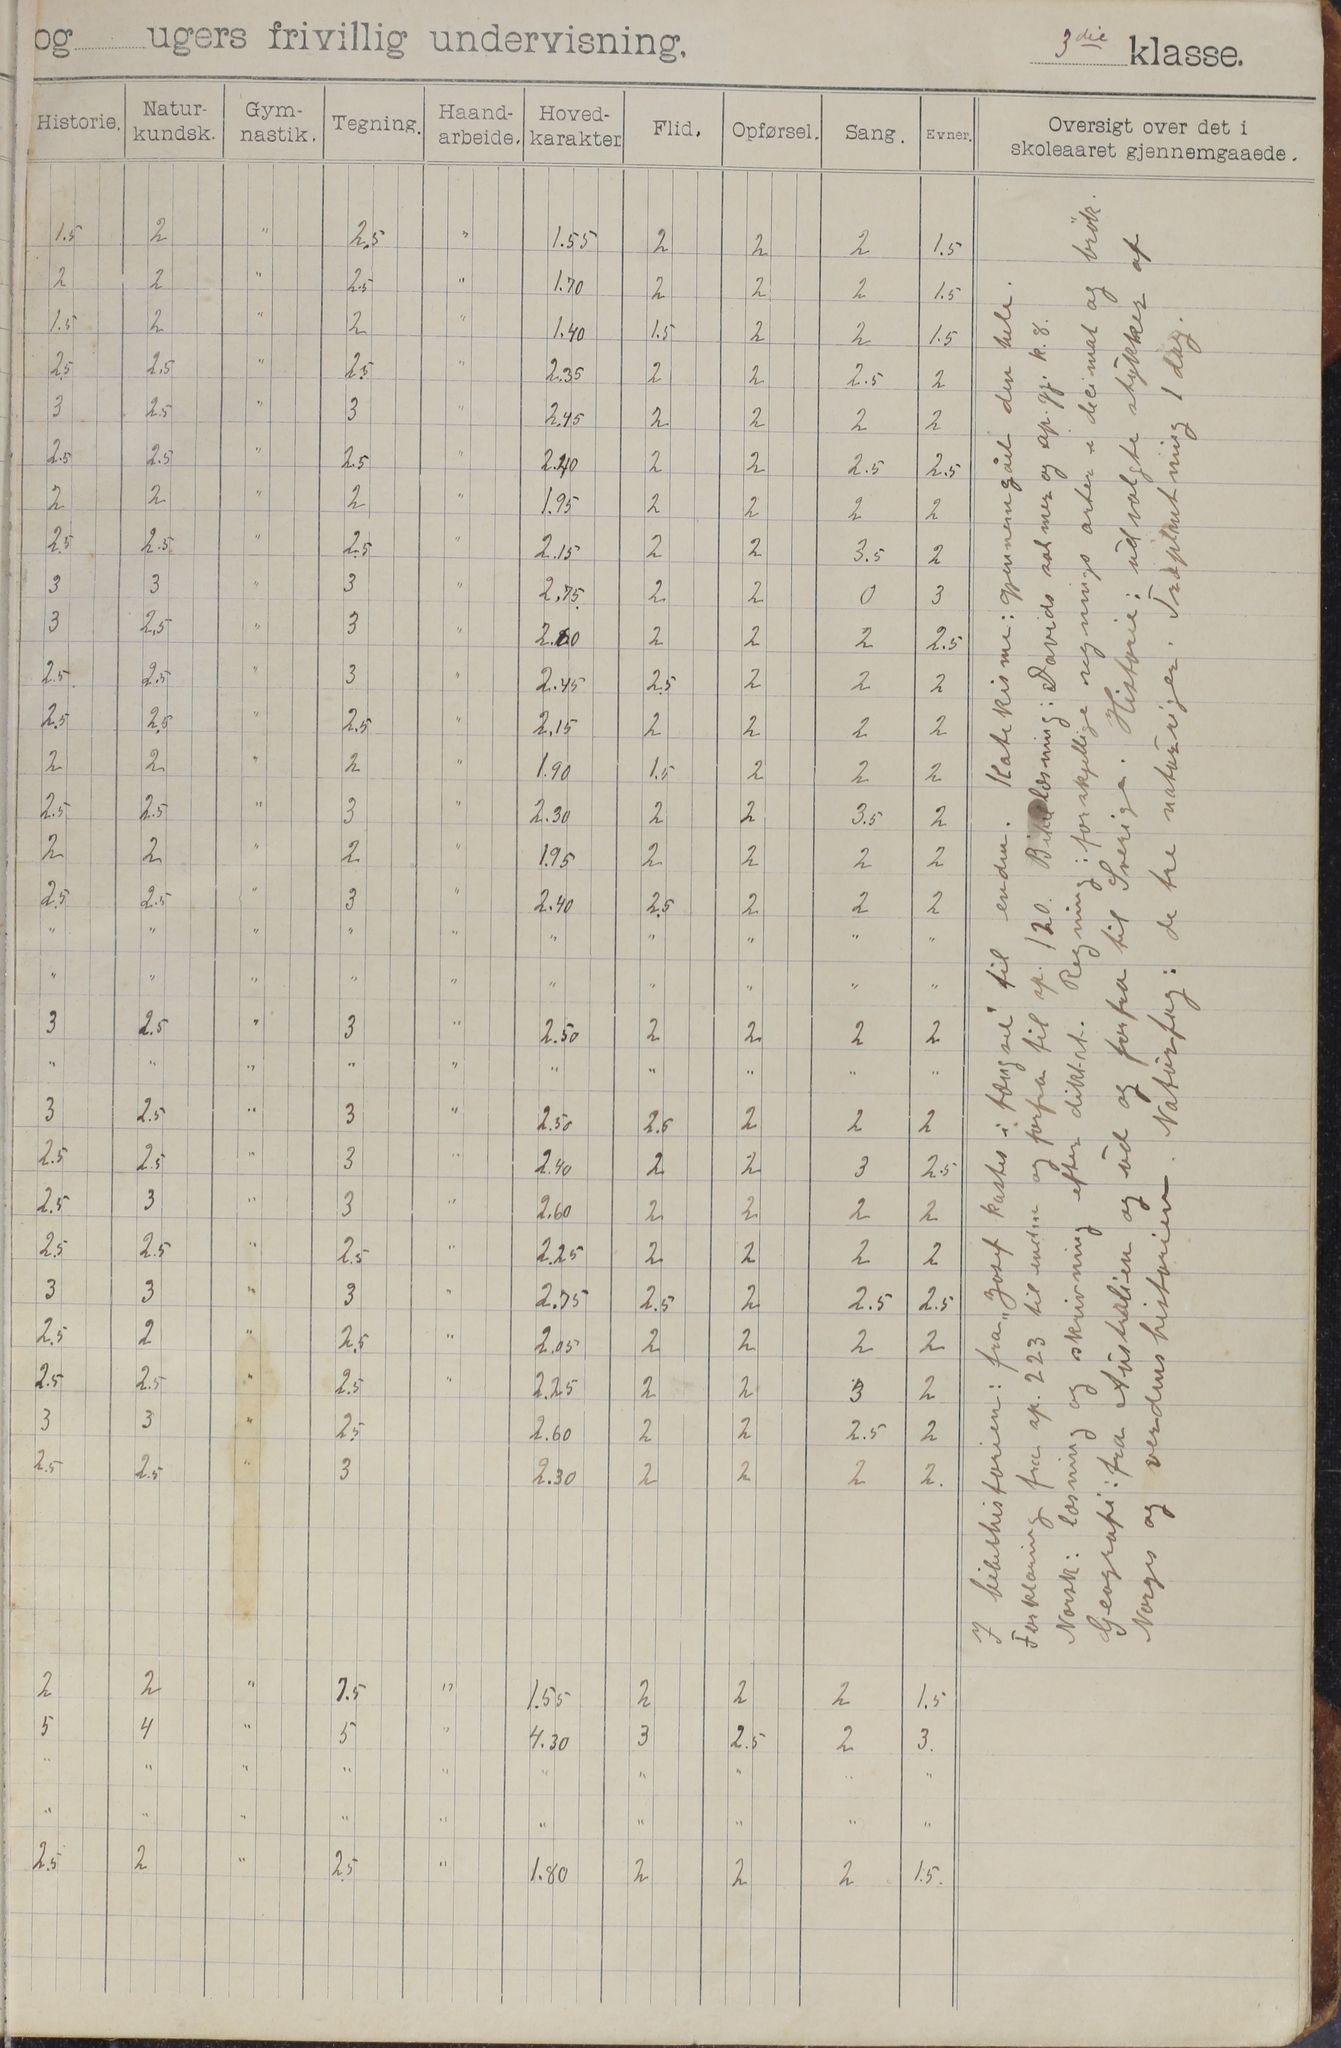 og ugers frivillig undervisning. 3die klasse.
Historie. Natur-kundsk. Gym-nastik. Tegning. Haand-arbeide. Hoved-karakter Flid. Opførsel. Sang. Evner. Oversigt over det i skoleaaret gjennemgaaede.
1.5 2 " 2.5 " 1.55 2 2 2 1.5
2 2 " 2.5 " 1.70 2 2 2 1.5
1.5 2 " 2 " 1.40 1.5 2 2 1.5
2.5 2.5 " 2.5 " 2.35 2 2 2.5 2
3 2.5 " 3 " 2.45 2 2 2 2
2.5 2.5 " 2.5 " 2.40 2 2 2.5 2.5
2 2 " 2 " 1.95 2 2 2 2
2.5 2.5 " 2.5 " 2.15 2 2 3.5 2
3 3 " 3 " 2.75 2 2 0 3
3 2.5 " 3 " 2.60 2 2 2 2.5
2.5 2.5 " 3 " 2.45 2.5 2 2 2
2.5 2.5 " 2.5 " 2.15 2 2 2 2
2 2 " 2 " 1.90 1.5 2 2 2
2.5 2.5 " 3 " 2.30 2 2 3.5 2
2 2 " 2 " 1.95 2 2 2 2
2.5 2.5 " 3 " 2.40 2.5 2 2 2
" " " " " " " " " "
" " " " " " " " " "
3 2.5 " 3 " 2.50 2 2 2 2
" " " " " " " " " "
3 2.5 " 3 " 2.50 2.5 2 2 2
2.5 2.5 " 3 " 2.40 2 2 3 2.5
2.5 3 " 3 " 2.60 2 2 2 2
2.5 2.5 " 2.5 " 2.25 2 2 2 2
3 3 " 3 " 2.75 2.5 2 2.5 2.5
2.5 2 " 2.5 " 2.05 2 2 2 2
2.5 2.5 " 2.5 " 2.25 2 2 3 2
3 3 " 2.5 2.60 2 2 2.5 2
2.5 2.5 " 3 2.30 2 2 2 2.
2 2 " 1.5 " 1.55 2 2 2 1.5
5 4 " 5 " 4.30 3 2.5 2 3.
" " " " " " " " " "
" " " " " " " " " "
2.5 2 " 2.5 " 1.80 2 2 2 1.5.
I bibelhistorien: fra „Josef kastes i fængsel" til enden. Katekisme: gjennemgået den hele.
Forklaring fra sp. 223 til enden og forfra til sp. 120. Bibellæsning: Davids salmer og ap. gj. k. 8.
Norsk: læsning og skrivning efter diktat. Regning: forskjellige regnings arter i decimal og brøk.
Geografi: fra Australien og ud og forfra til Sverige. Historie: udvalgte stykker af
Norges og verdenshistorien. Naturfag: de tre naturriger. Træplantning 1 dag.